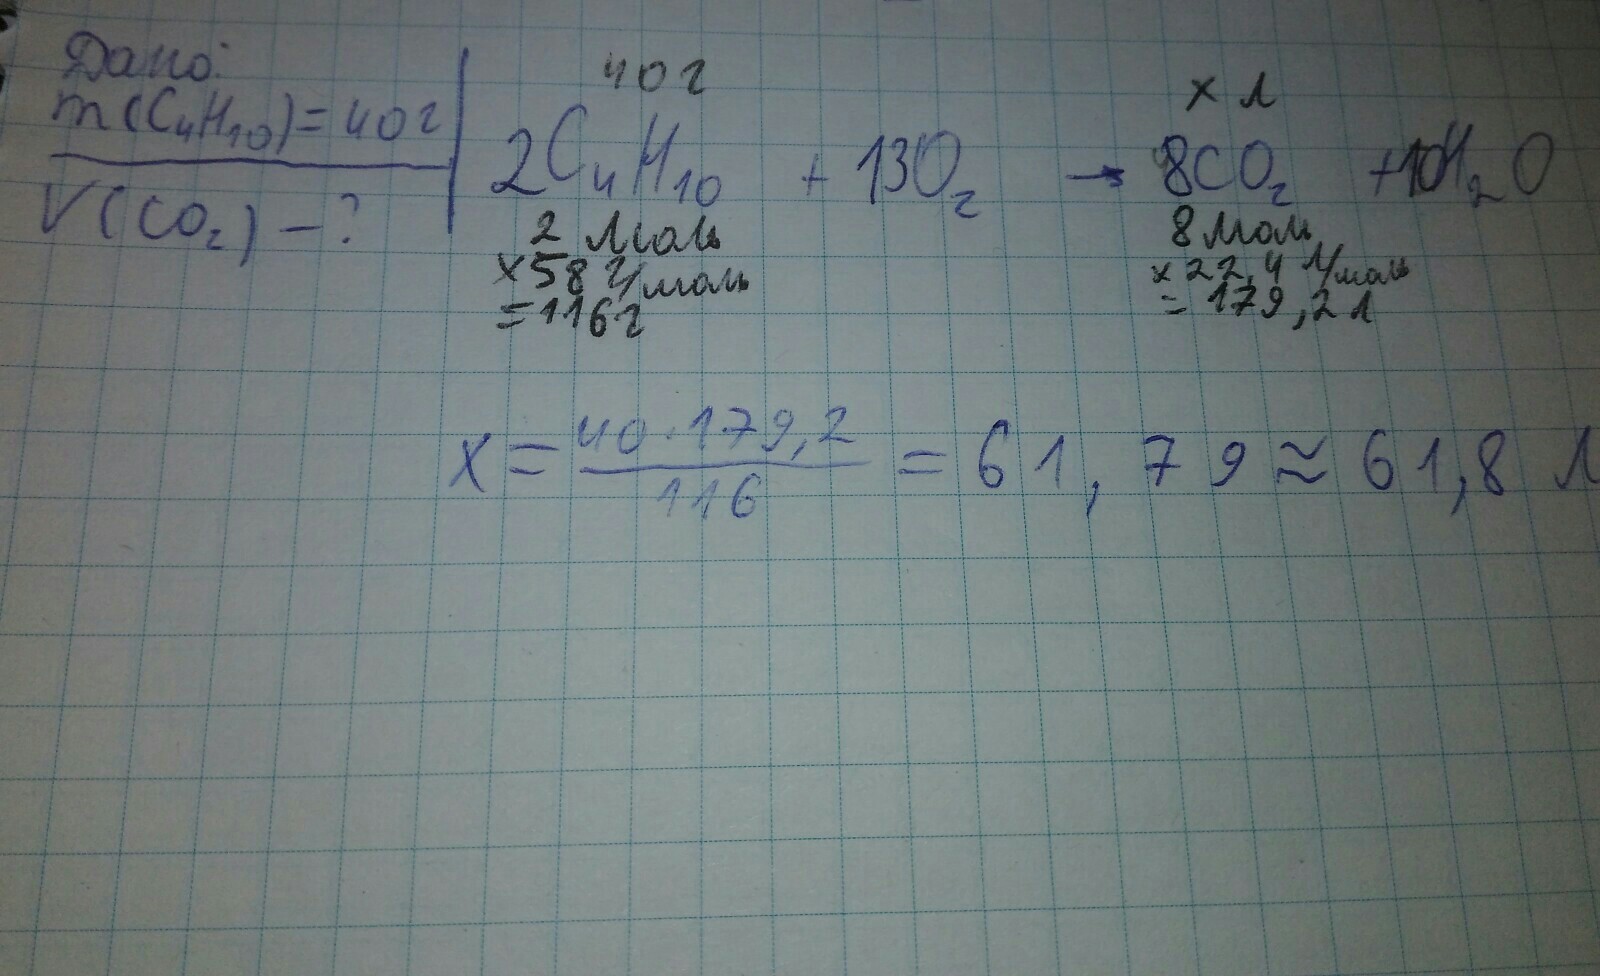 Дано:
m(C₄H₁₀)=40г
V(CO₂) – ?
40г x л
2C₄H₁₀ + 13O₂ → 8CO₂ + 10H₂O
2 моль 8 моль
×58 г/моль ×22,4 л/моль
=116г =179,2 л
x = 40·179,2 / 116 = 61,79 ≈ 61,8 л